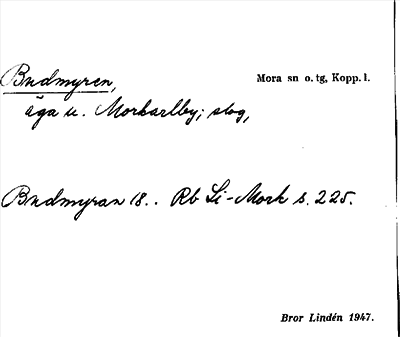 Budmyren, Mora sn o. tg, Kopp. l.
äga u. Morkarlby; slog,
Budmyran 18.. Rb Li-Mork s. 225.
Bror Lindén 1947.